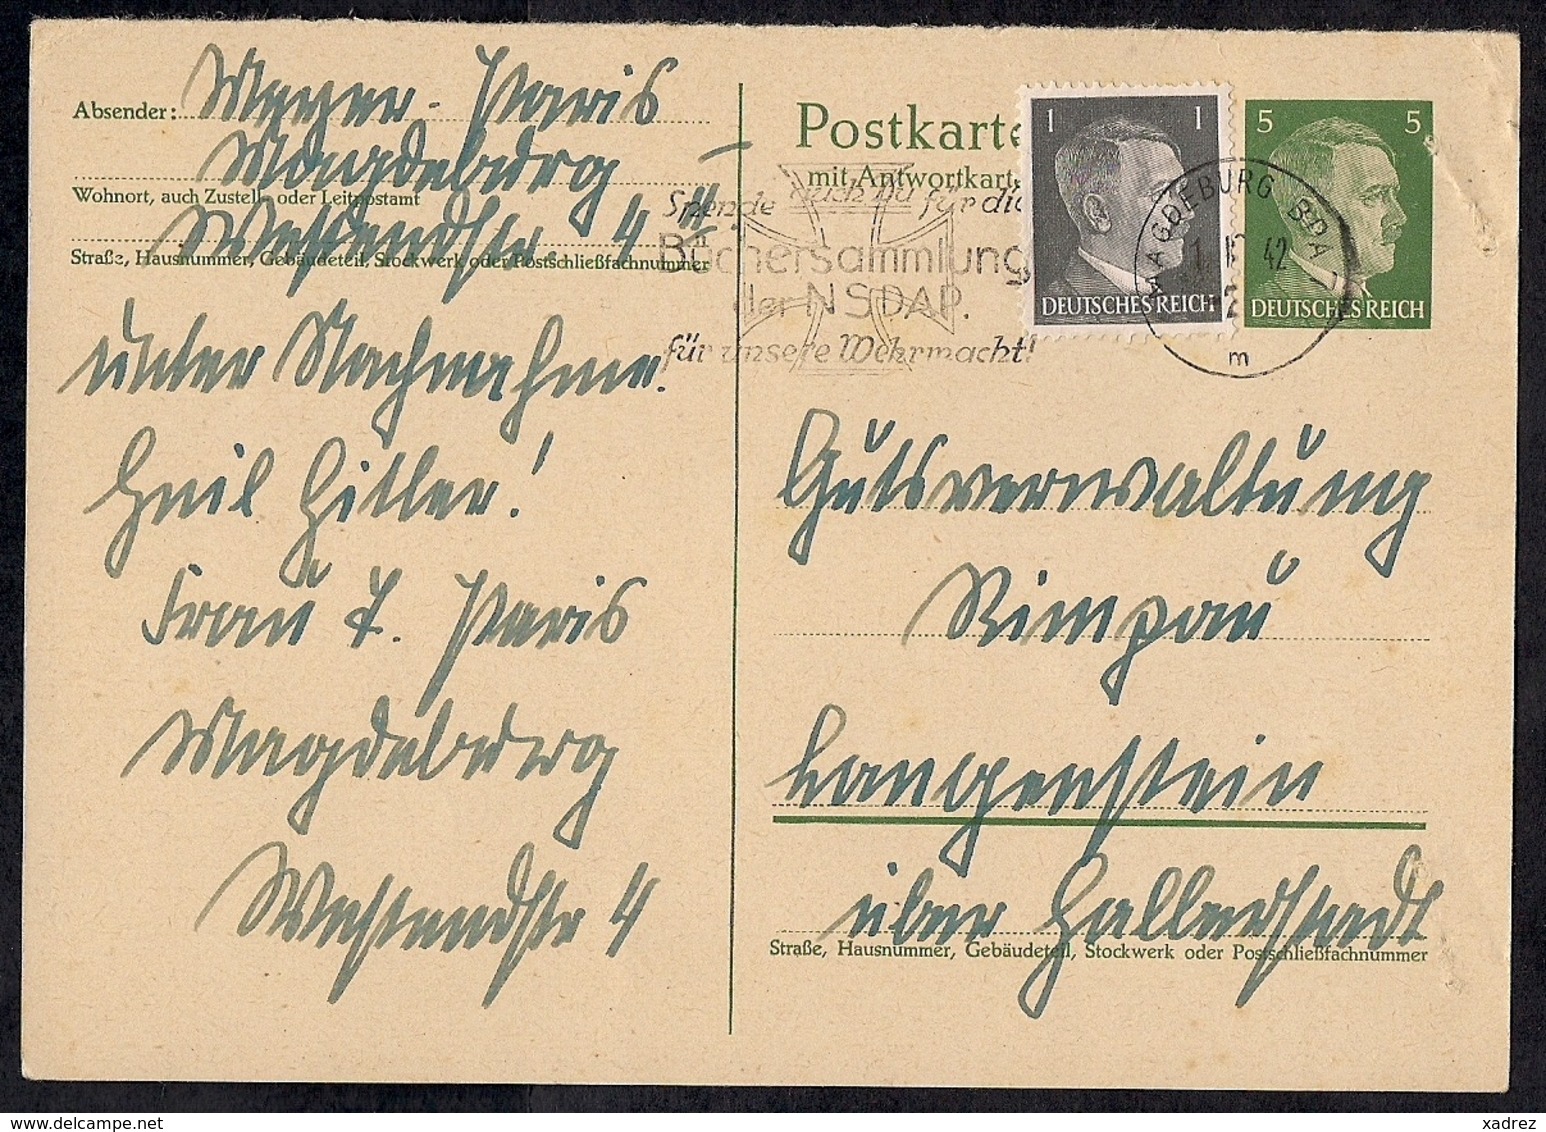 Absender: Meyer-Paris
Magdeburg
Wohnort, auch Zustell- oder Leitpostamt
Westendstr. 4 II.
Straße, Hausnummer, Gebäudeteil, Stockwerk oder Postschließfachnummer
unter Nachnahme.
Heil Hitler!
Frau T. Paris
Magdeburg
Westendstr 4
Postkarte
mit Antwortkarte
Spende auch Du für die
Büchersammlung
der NSDAP.
für unsere Wehrmacht!
1 1
DEUTSCHES REICH
5 5
DEUTSCHES REICH
MAGDEBURG BPA 7
42
m
Gutsverwaltung
Rimpau
Langenstein
über Halberstadt
Straße, Hausnummer, Gebäudeteil, Stockwerk oder Postschließfachnummer
www.delcampe.net
xadrez